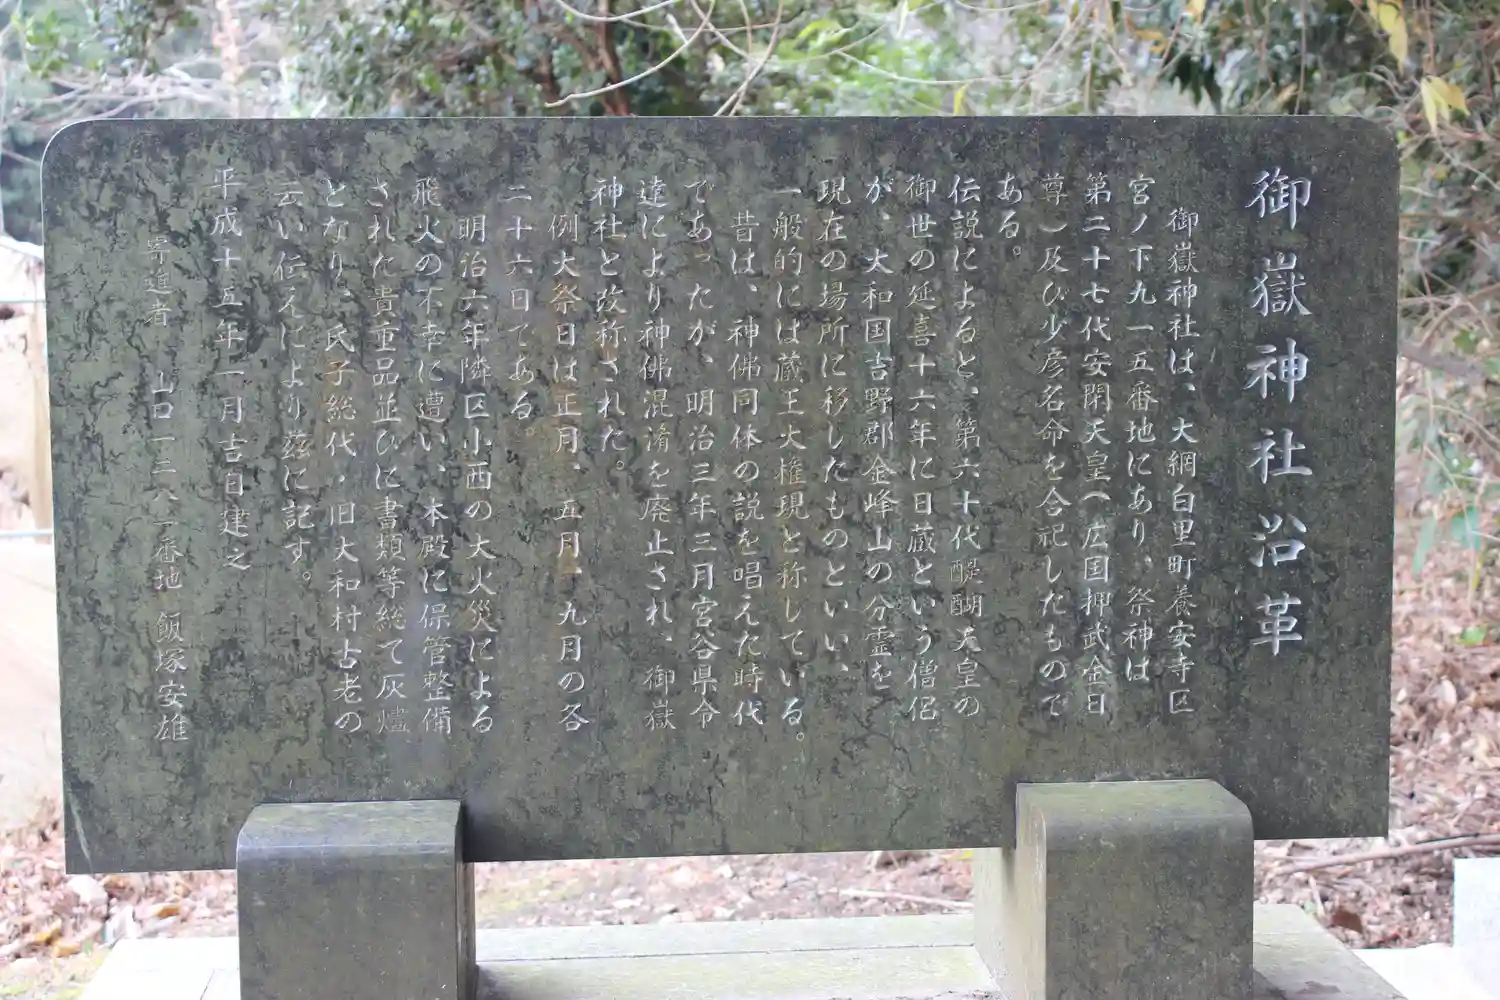 御嶽神社沿革
御嶽神社は、大網白里町養安寺区
宮ノ下九一五番地にあり、祭神は
第二十七代安閑天皇(広国押武金日
尊)及び少彦名命を合祀したもので
ある。
伝説によると、第六十代醍醐天皇の
御世の延喜十六年に日蔵という僧侶
が、大和国吉野郡金峰山の分霊を
現在の場所に移したものといい、
一般的には蔵王大権現と称している。
昔は、神佛同体の説を唱えた時代
であったが、明治三年三月宮谷県令
達により神佛混淆を廃止され、御嶽
神社と改称された。
例大祭日は正月、五月、九月の各
二十六日である。
明治六年隣区小西の大火災による
飛火の不幸に遭い、本殿に保管整備
された貴重品並びに書類等総て灰燼
となり、氏子総代・旧大和村古老の
云い伝えにより茲に記す。
平成十五年一月吉日建之
寄進者 山口一三八一番地 飯塚安雄